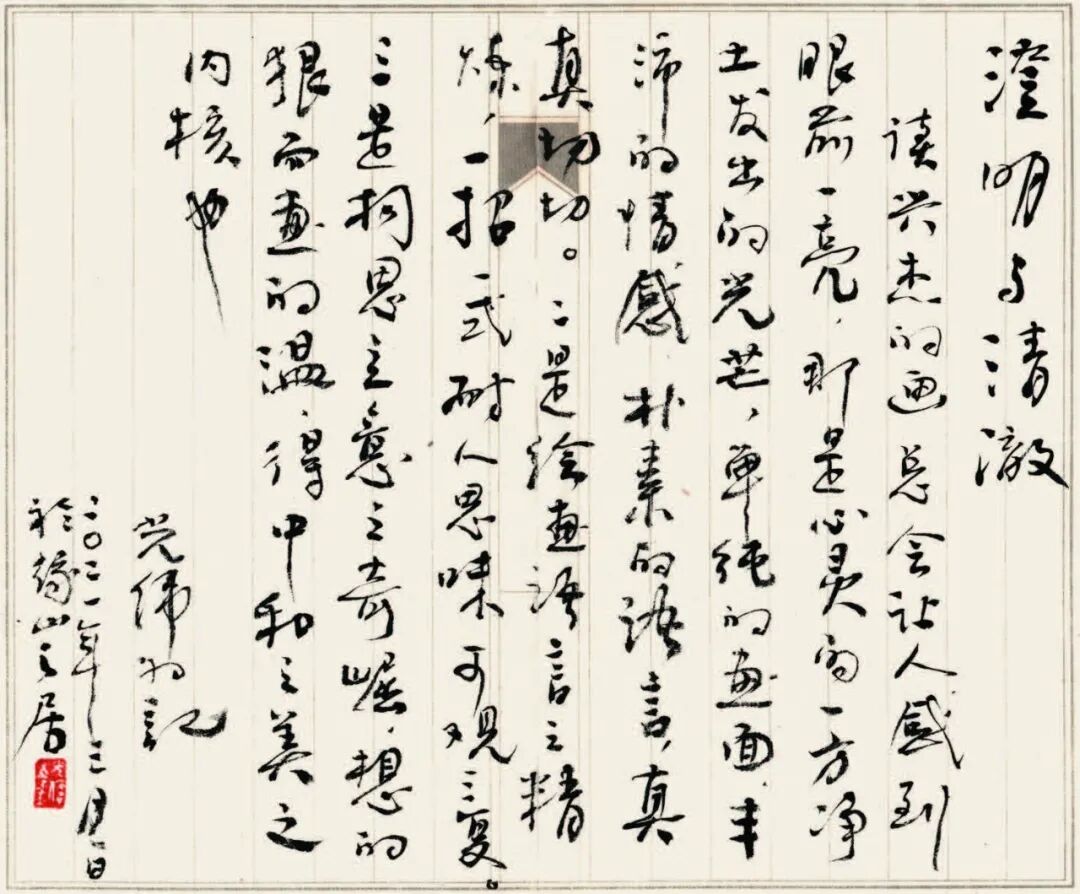 澄明与清澈
读兴杰的画总会让人感到
眼前一亮，那是心灵的一方净
土发出的光芒，单纯的画面，丰
沛的情感，朴素的语言，真
真切切。二是绘画语言之精
炼，一招一式耐人思味可观三复。
三是构思立意之奇崛，想的
狠而画的温，得中和之美之
内核也
光伟初记
二〇二一年三月一日
於缘山之居